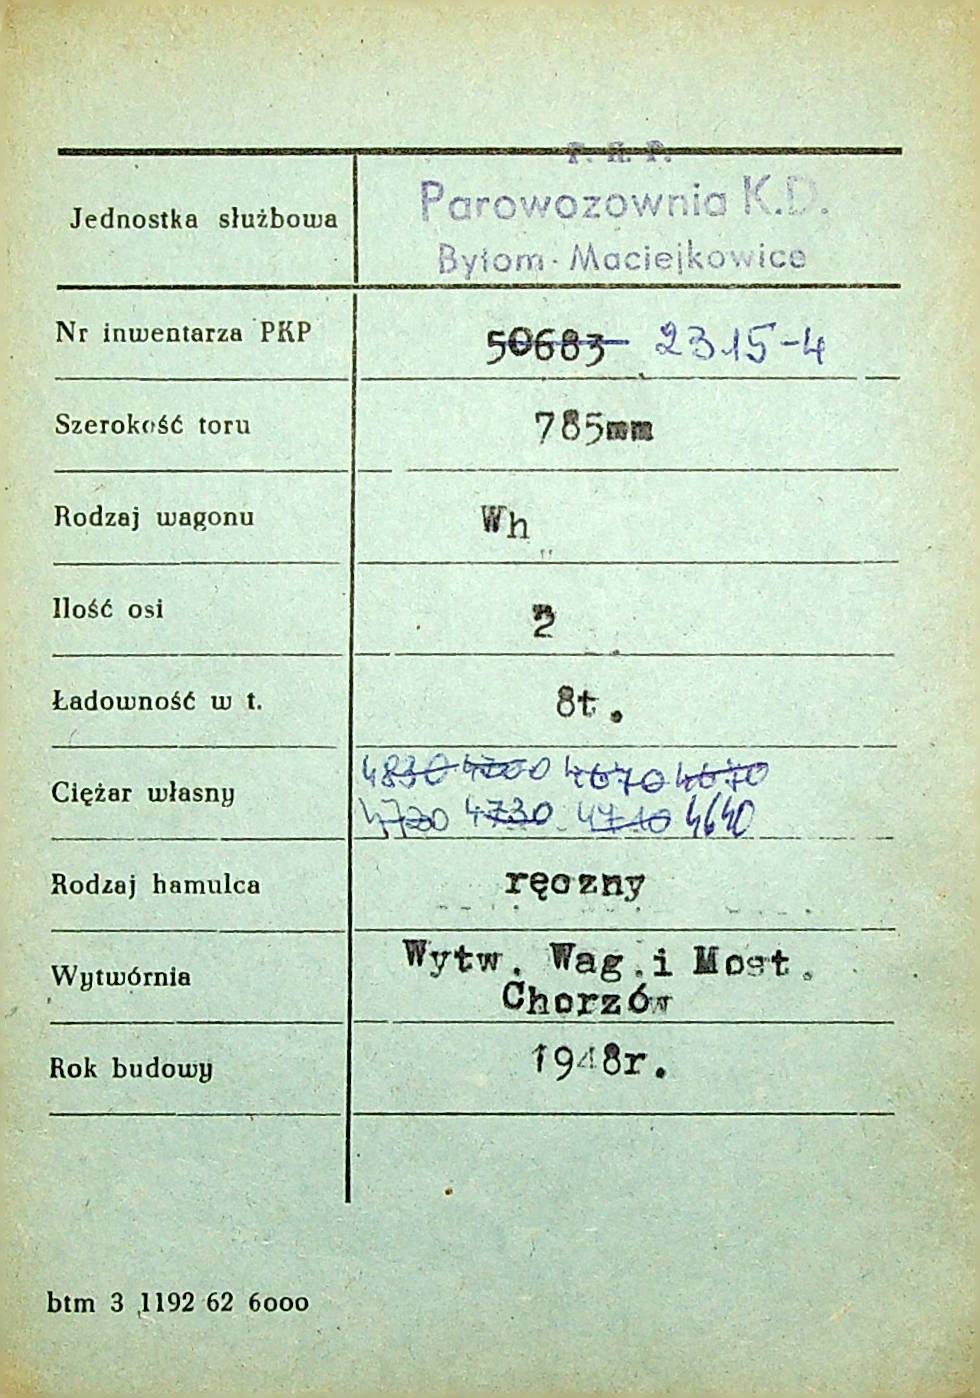 P. K. P.
Jednostka służbowa Parowozownia K.D.
Bytom - Maciejkowice
Nr inwentarza PKP 50683 2315-4
Szerokość toru 785mm
Rodzaj wagonu Wh
Ilość osi 2
Ładowność w t. 8t.
Ciężar własny 4830 4700 4670 4670
4720 4730 4710 4640
Rodzaj hamulca ręczny
Wytwórnia Wytw. Wag. i Most.
Chorzów
Rok budowy 1948r.
btm 3 1192 62 6000